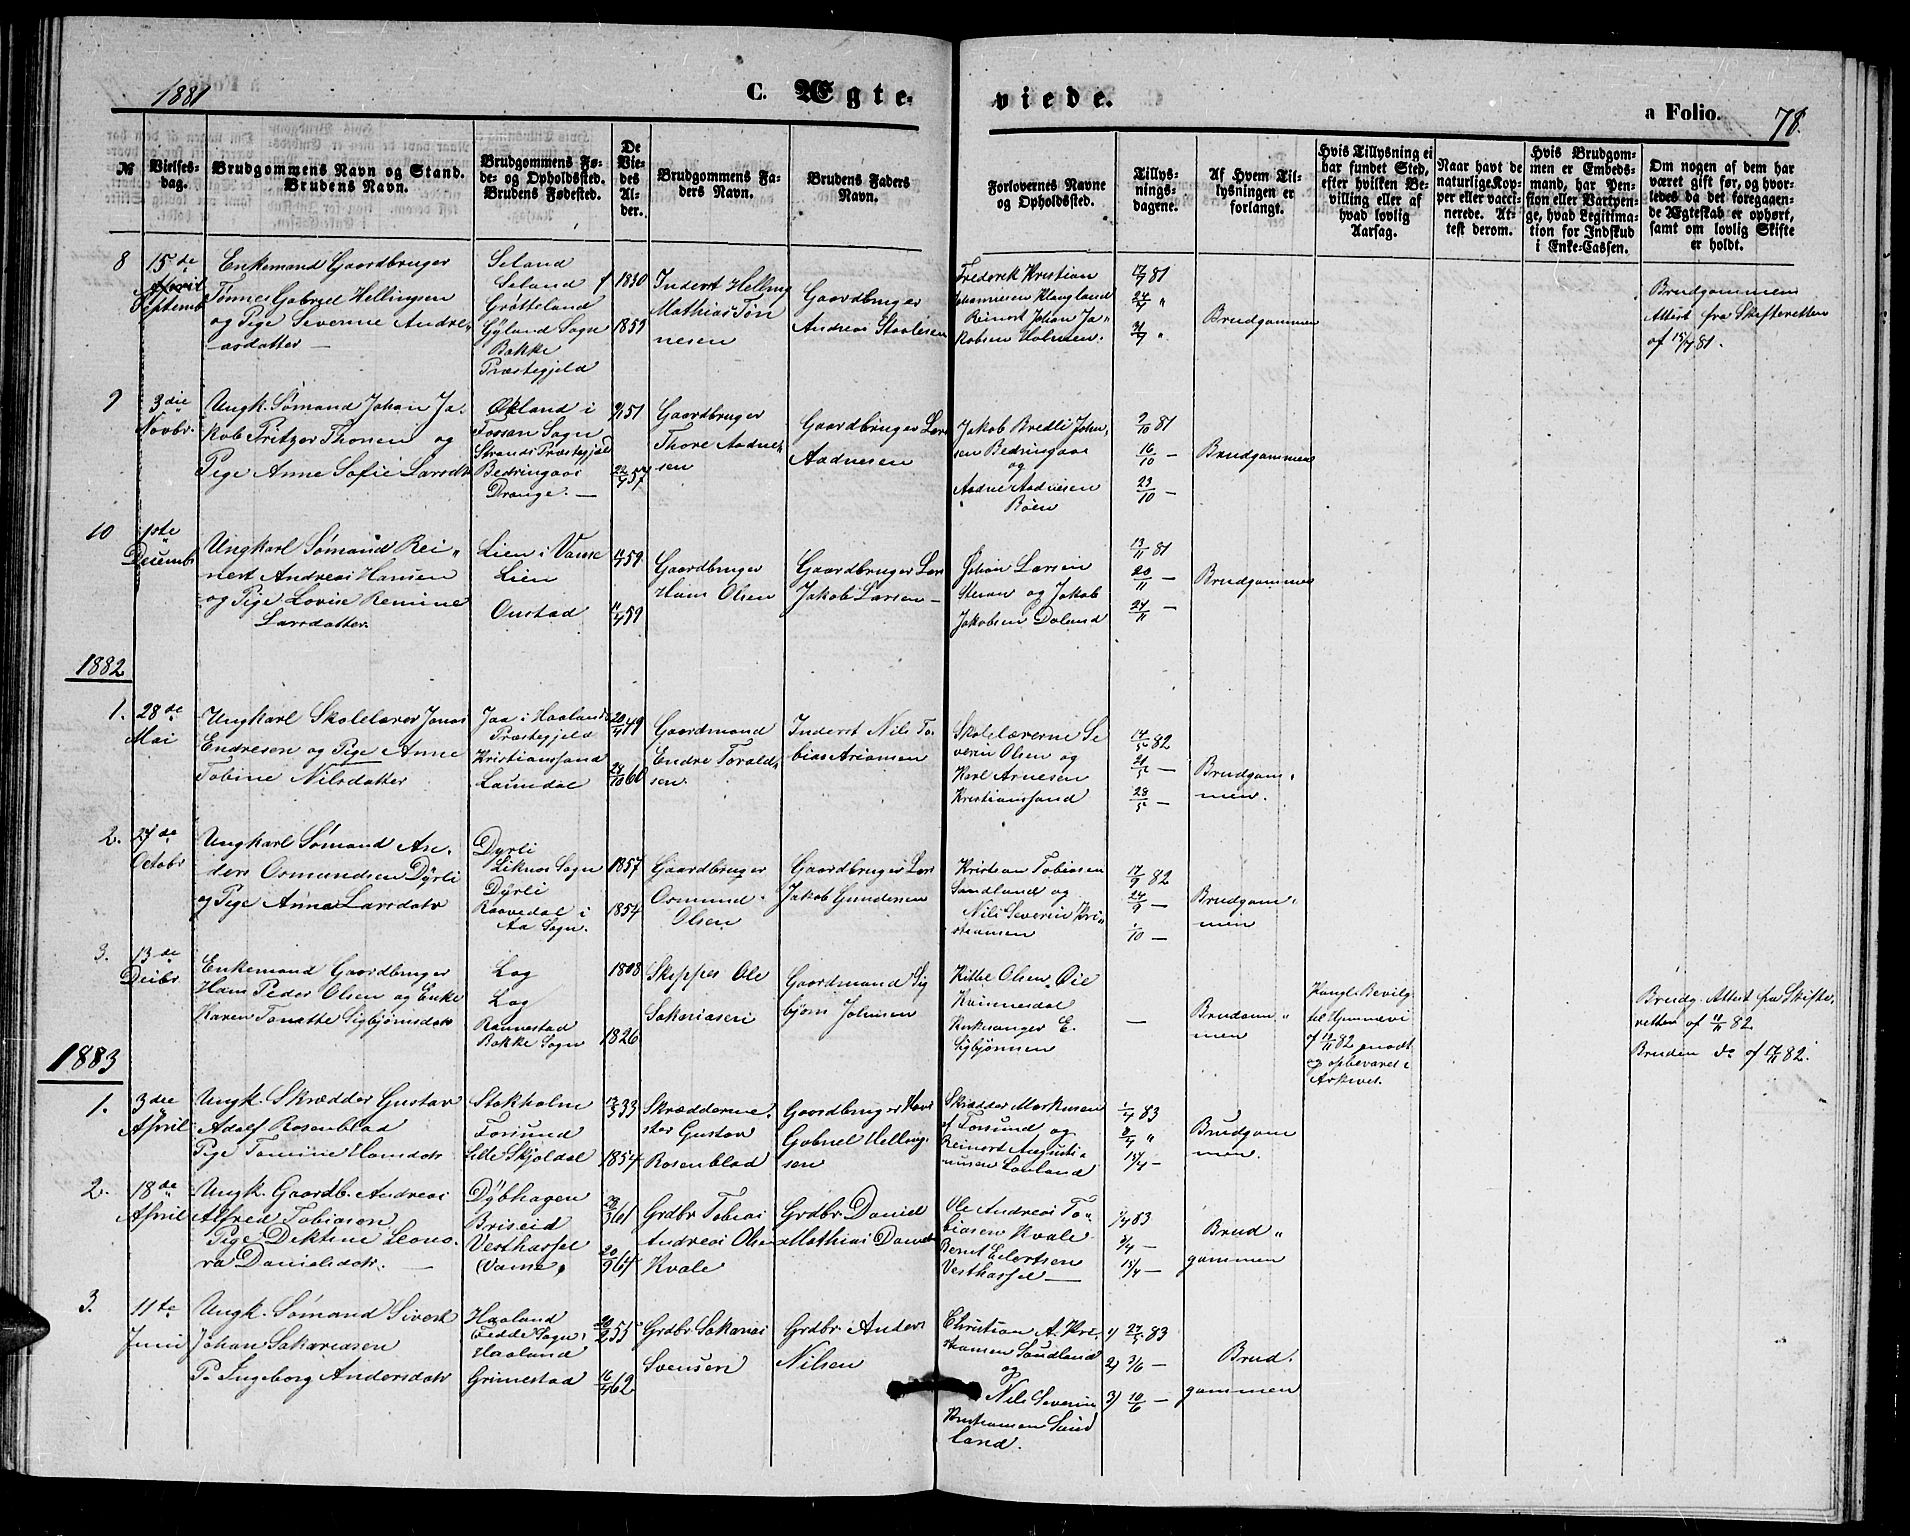 1881
C. Ægte-
viede.
a Folio.
78.
№
Vielses-
dag.
Brudgommens Navn og Stand.
Brudens Navn.
Brudgommens Fø-
de- og Opholdssted.
Brudens Fødested.
De
Vie-
des
Al-
der.
Brudgommens Fa-
ders Navn.
Brudens Faders
Navn.
Forlovernes Navne
og Opholdssted.
Tillys-
nings-
dagene.
Af Hvem Til-
lysningen er
forlangt.
Hvis Tillysning ei
har fundet Sted,
efter hvilken Be-
villing eller af
hvad lovlig
Aarsag.
Naar havt de
naturlige Kop-
per eller vacci-
nerede. At-
test derom.
Hvis Brudgom-
men er Embeds-
mand, har Pen-
sion eller Vartpen-
ge, hvad Legitima-
tion for Indskud
i Enke-Cassen.
Om nogen af dem har
været gift før, og hvor-
ledes da det foregaaen-
de Ægteskab er ophørt,
samt om lovlig Skifte
er holdt.
8
15de
Septemb
Enkemand Gaardbruger
Tønnes Gabriel Hellingsen
og Pige Severine Andre-
asdatter —
Seland
Seland
Grøtteland
Gyland Sogn
Bakke
Præstegjeld
1830
1859
Inderst Helling
Mathias Tøn
nesen
Gaardbruger
Andreas Staalesen
Frederik Kristian
Johannesen Klungland
Reinert Johan Ja-
kobsen Holmen.
17/7 81
24/7 "
31/7 "
Brudgommen
Brudgommen
Attest fra Skifteretten
af 15/7 81.
9
3die
Novbr.
Ungk. Sømand Johan Ja-
kob Fritzer Thorsen og
Pige Anne Sofie Larsdtr
Økland i
Fossan Sogn
Strands Præstegjeld
Bedringaas
Drange. —
9/1 51
22/4 57
Gaardbruger
Thore Aadne-
sen
Gaardbruger Lars
Aadnesen
Jakob Bredli John-
sen Bedringaas
og
Aadne Aadnesen
Bøen
9/10 81
16/10 —
23/10 —
Brudgommen
10
1ste
Decemb
Ungkarl Sømand Rei-
nert Andreas Hansen
og Pige Lovise Remine
Larsdatter.
Lien i Vanse
Lien
Onstad
59
11/4 59
Gaardbruger
Hans Olsen
Gaardbruger Lars
Jakob Larsen —
Johan Larsen
Steran og Jakob
Jakobsen Doland
13/11 81
20/11 —
27/11 —
Brudgommen
1882
1.
28de
Mai
Ungkarl Skolelærer Jonas
Endresen og Pige Anne
Tobine Nilsdatter
Jaa i Haalands
Præstegjeld
Kristianssand
Laundal
20/4 49
28/10 60
Gaardmand
Endre Torald-
sen.
Inderst Nils To-
bias Ariansen
Skolelærerne Se
verin Olsen og
Karl Arnesen
Kristianssand
14/5 82
21/5 —
28/5 —
Brudgom-
men.
2.
27de
Octobr
Ungkarl Sømand An-
ders Osmundsen Dyrli
og Pige Anna Larsdatr
Dyrli
Liknes Sogn
Dyrli
Raavedal i
Aa Sogn.
1857
1854
Gaardbruger
Osmund
Olsen
Gaardbruger Lars
Jakob Gundersen
Kristian Tobiasen
Sandland og
Nils Severin Kri-
stiansen
17/9 82
24/9 —
1/10 —
Brudgom-
men
3.
13de
Decbr
Enkemand Gaardbruger
Hans Peder Olsen og Enke
Karen Tonette Sigbjørnsdatr
Log
Log
Rannestad
Bakke Sogn
1808
1826
Skipper Ole
Sakariasen
Gaardmand Sig
bjørn Johnsen
Kittel Olsen Øie
Kvinnesdal
Kirkesanger E.
Sigbjørnsen
—
Brudgom-
men
Kongl. Bevilg
til Hjemmevi
af 13/11 82 produt
og opbevaret i
Arkivet.
Brudg. Attest fra Skifte-
retten af 11/11 82
Bruden do af 17/11 82.
1883
1.
3die
April
Ungk. Skrædder Gustav
Adolf Rosenblad
Pige Tomine Hansdatr
Stokholm
Farsund
Lille Skjoldal
12/5 33
1854
Skrædderme-
ster Gustav
Rosenblad
Gaardbruger Hans
Gabriel Helling-
sen
Skrædder Markusen
af Farsund og
Reinert Augusti-
nusen Louland
1/4 83
8/4 "
15/4 —
Brudgom
men.
2.
18de
April
Ungk. Gaardb. Andreas
Alfred Tobiasen
Pige Dektine Leono-
ra Danielsdatr. —
Dybhagen
Briseid
Vesthassel
(Vanse)
29/3 61
20/9 64
Grdbr Tobias
Andreas Olsen
Kvale
Grdbr Daniel
Mathias Daniels
Ole Andreas To-
biasen Kvale
Bernt Eilertsen
Vesthassel —
1/4 83
8/4 —
15/4 —
Brud-
gommen
3.
11te
Juni
Ungk. Sømand Sivert
Johan Sakariasen
P. Ingeborg Andersdatr
Haaland
Fedde Sogn,
Haaland
Grimestad
20/2 55
16/4 62
Grdbr Sakarias
Svensen
Grdbr Anders
Nilsen
Christian A. Kri-
stiansen Sandland
og
Nils Severin
Kristiansen Sand
land.
1) 27/5 83
2) 3/6 —
3) 10/6 —
Brud-
gommen